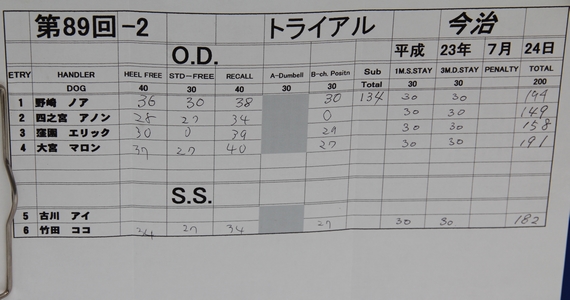 第89回-2 トライアル 今治
O.D. 平成 23年 7月 24日
ETRY HANDLER HEEL FREE STD-FREE RECALL A-Dumbell B-ch. Positn Sub 1M.S.STAY 3M.D.STAY PENALTY TOTAL
DOG 40 30 40 30 30 Total 30 30 200
1 野崎 ノア 36 30 38 30 134 30 30 194
2 四之宮 アノン 28 27 34 0 30 30 149
3 窪園 エリック 30 0 39 29 30 30 158
4 大宮 マロン 37 27 40 27 30 30 191
S.S.
5 古川 アイ
6 竹田 ココ 34 27 34 27 30 30 182